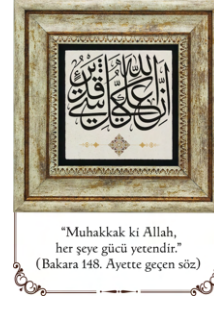 إن الله على كل شيء قدير
“Muhakkak ki Allah,
her şeye gücü yetendir.”
(Bakara 148. Ayette geçen söz)